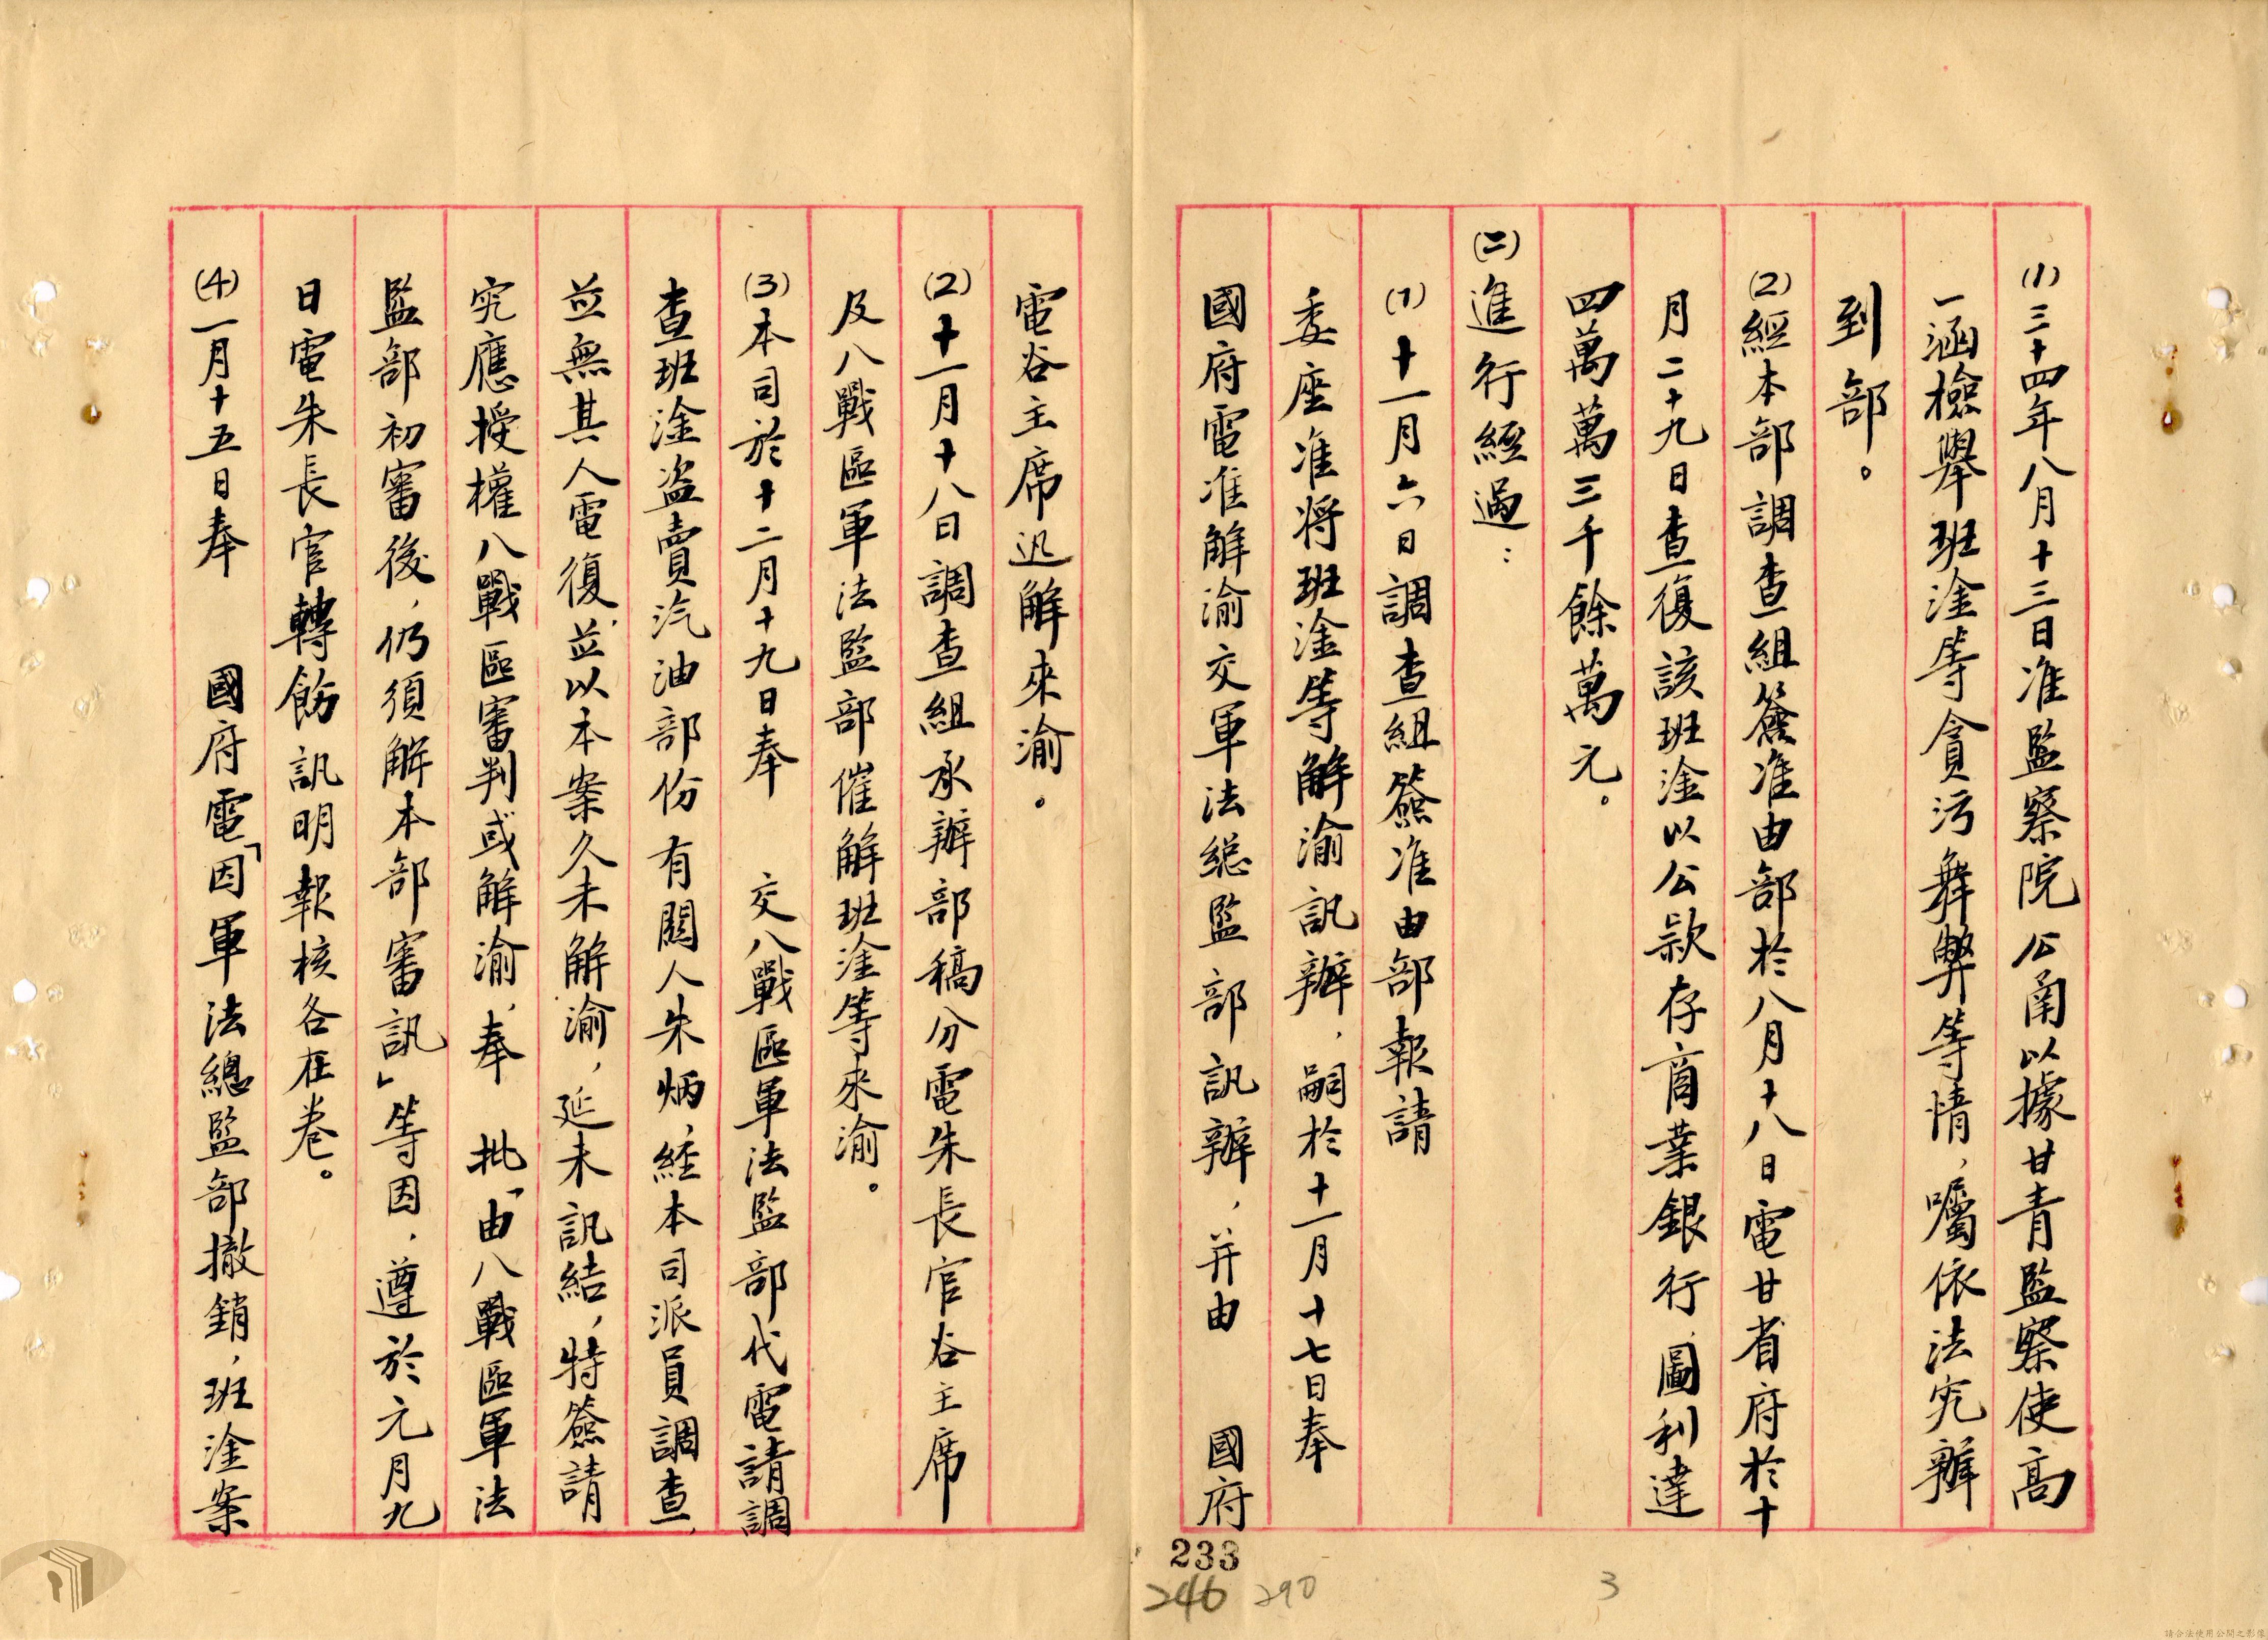 (1)三十四年八月十三日准監察院公函以據甘青監察使高
一涵檢舉班淦等貪污舞弊等情，囑依法究辦
到部。
(2)經本部調查組簽准由部於八月十八日電甘省府於十
月二十九日查復該班淦以公款存商業銀行，圖利達
四萬萬三千餘萬元。
(二)進行經過：
(1)十一月六日調查組簽准由部報請
委座准將班淦等解渝訊辦，嗣於十一月十七日奉
國府電准解渝交軍法總監部訊辦，并由 國府
電谷主席迅解來渝。
(2)十一月十八日調查組承辦部稿分電朱長官谷主席
及八戰區軍法監部催解班淦等來渝。
(3)本司於十二月十九日奉 交八戰區軍法監部代電請調
查班淦盜賣汽油部份有關人朱炳，經本司派員調查，
並無其人電復，並以本案久未解渝，延未訊結，特簽請
究應授權八戰區審判或解渝，奉 批「由八戰區軍法
監部初審後，仍須解本部審訊」等因，遵於元月九
日電朱長官轉飭訊明報核各在卷。
(4)一月十五日奉 國府電「因軍法總監部撤銷，班淦案
233
246 290
3
請合法使用公開之影像